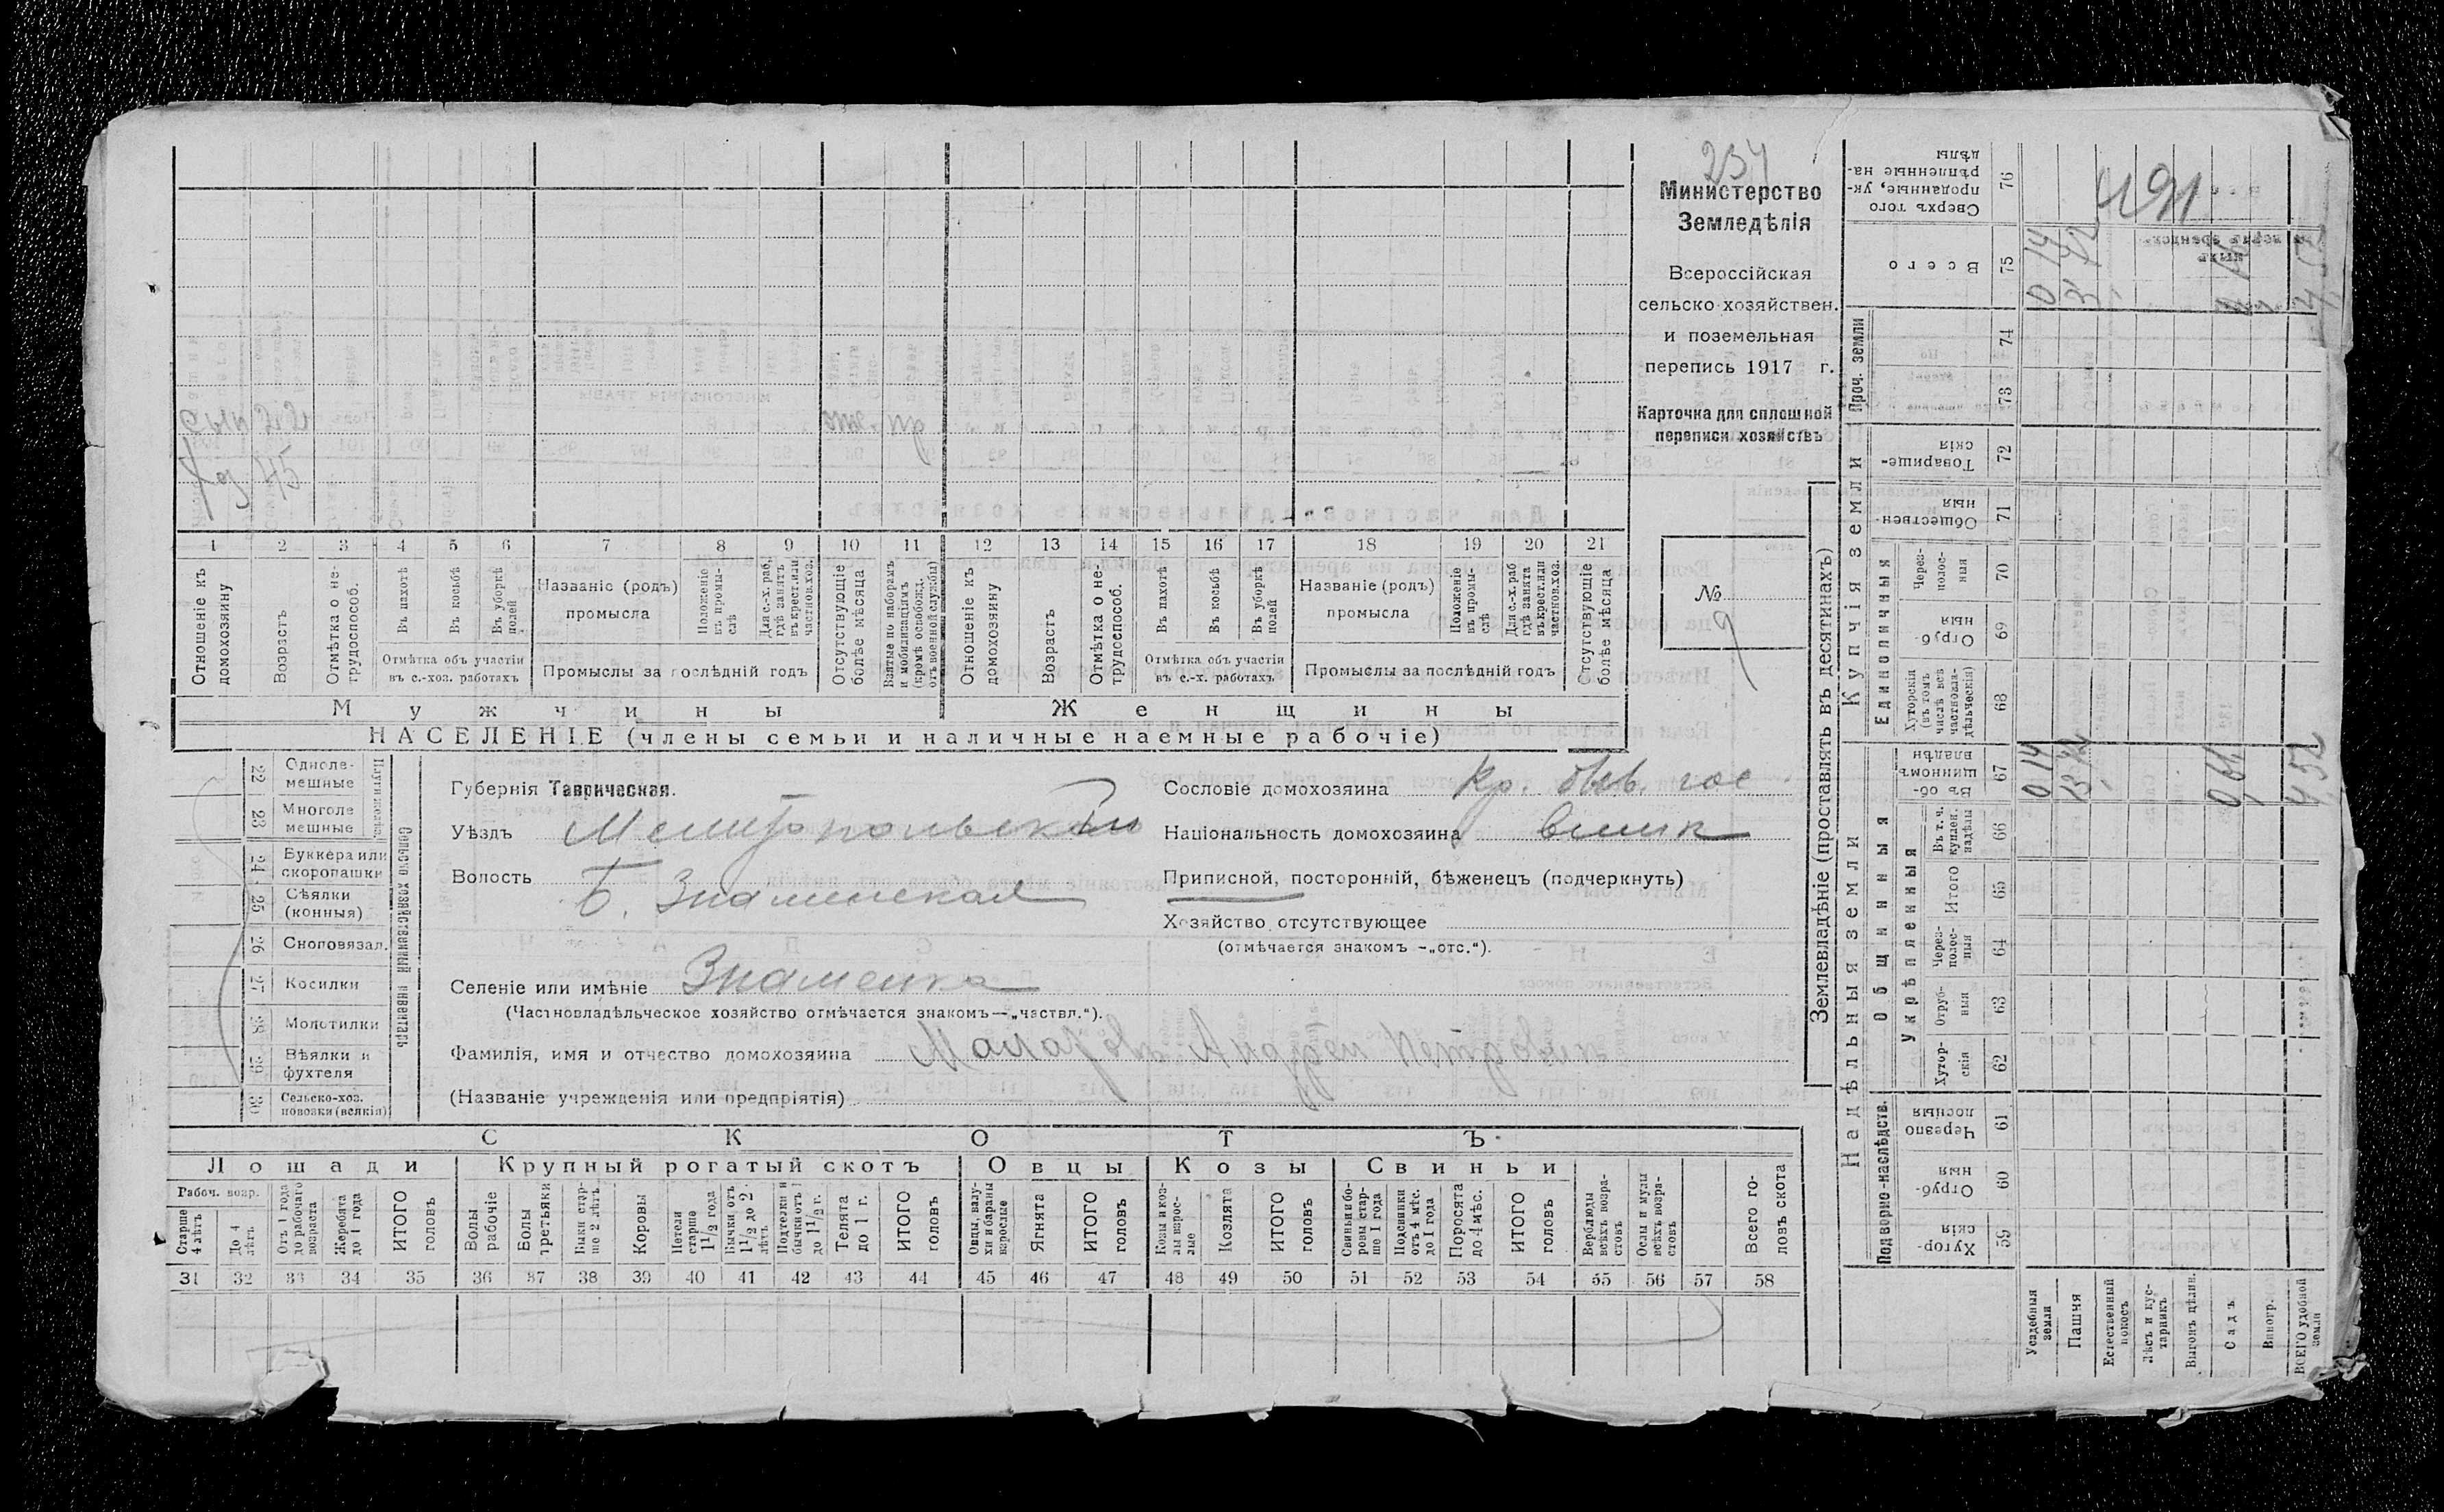 234
Министерство
Земледѣлія
Всероссійская
сельско-хозяйствен.
и поземельная
перепись 1917 г.
Карточка для сплошной
переписи хозяйствъ
№ 9
сынъ
хоз 45
1 2 3 4 5 6 7 8 9 10 11 12 13 14 15 16 17 18 19 20 21
Отношеніе къ домохозяину
Возрастъ
Отмѣтка о не-трудоспособ.
Въ пахотѣ
Въ косьбѣ
Въ уборкѣ полей
Отмѣтка объ участіи въ с.-хоз. работахъ
Названіе (родъ) промысла
Положеніе въ промы-слѣ
Для с.-х. раб, гдѣ занятъ въ крест. или частнов. хоз.
Промыслы за послѣдній годъ
Отсутствующіе болѣе мѣсяца
Взятые по наборамъ и мобилизаціямъ (кромѣ освобожд. отъ военной службы)
Отношеніе къ домохозяину
Возрастъ
Отмѣтка о не-трудоспособ.
Въ пахотѣ
Въ косьбѣ
Въ уборкѣ полей
Отмѣтка объ участіи въ с.-х. работахъ
Названіе (родъ) промысла
Положеніе въ промы-слѣ
Для с.-х. раб гдѣ занята въ крест. или частнов. хоз.
Промыслы за послѣдній годъ
Отсутствующіе болѣе мѣсяца
Мужчины Женщины
НАСЕЛЕНІЕ (члены семьи и наличные наемные рабочіе)
Сельско хозяйственный инвентарь
22 Одноле-мешные
23 Многоле мешные
24 Буккера или скоропашки
25 Сѣялки (конныя)
26 Сноповязал.
27 Косилки
28 Молотилки
29 Вѣялки и фухтеля
30 Сельско-хоз. повозки (всякія)
Губернія Таврическая.
Уѣздъ Мелитопольскій
Волость Б. Знаменская
Селеніе или имѣніе Знаменка
(Частновладѣльческое хозяйство отмѣчается знакомъ—„частвл.“).
Фамилія, имя и отчество домохозяина Андрей Петровичъ
(Названіе учрежденія или предпріятія)
Сословіе домохозяина Кр. быв. гос
Національность домохозяина велик
Приписной, посторонній, бѣженецъ (подчеркнуть)
Хозяйство отсутствующее
(отмѣчается знакомъ -„отс.“).
СКОТЪ
Лошади Крупный рогатый скотъ Овцы Козы Свиньи
Рабоч. возр.
Старше 4 лѣтъ
До 4 лѣтъ
Отъ 1 года до рабочаго возраста
Жеребята до 1 года
ИТОГО головъ
Волы рабочіе
Волы третьяки
Быки стар-ше 2 лѣтъ
Коровы
Нетели старше 1 1/2 года
Бычки отъ 1 1/2 до 2 лѣтъ
Подтелки и бычки отъ 1 до 1 1/2 г.
Телята до 1 г.
ИТОГО головъ
Овцы, валу-хи и бараны взрослые
Ягнята
ИТОГО головъ
Козы и коз-лы взрос-лые
Козлята
ИТОГО головъ
Свиньи и бо-ровы стар-ше 1 года
Подсвинки отъ 4 мѣс. до 1 года
Поросята до 4 мѣс.
ИТОГО головъ
Верблюды всѣхъ возра-стовъ
Ослы и мулы всѣхъ возра-стовъ
Всего го-ловъ скота
31 32 33 34 35 36 37 38 39 40 41 42 43 44 45 46 47 48 49 50 51 52 53 54 55 56 57 58
Землевладѣніе (проставлять въ десятинахъ)
Надѣльныя земли Купчія земли
Подворно-наслѣдств. Общинныя Единоличныя Проч. земли
Укрѣпленныя
Хутор-скія 59
Отруб-ныя 60
Черезпо лосныя 61
Хутор-скія 62
Отруб-ныя 63
Через-полос-ныя 64
Итого 65
Въ т. ч. куплен. надѣлы 66
Въ об-щинномъ владѣн 67
Хуторскія (въ томъ числѣ всѣ частновла-дѣльческія) 68
Отруб-ныя 69
Через-полос-ныя 70
Обществен-ныя 71
Товарище-скія 72
73
74
Всего 75
Сверхъ того проданные, ук-рѣпленные на-дѣлы 76
491
Усадебныя земли 0 14 0 14
Пашня
Естественный покосъ
Лѣсъ и кус-тарникъ
Выгонъ цѣлин.
Садъ
Виногр.
ВСЕГО удобной земли 4,52